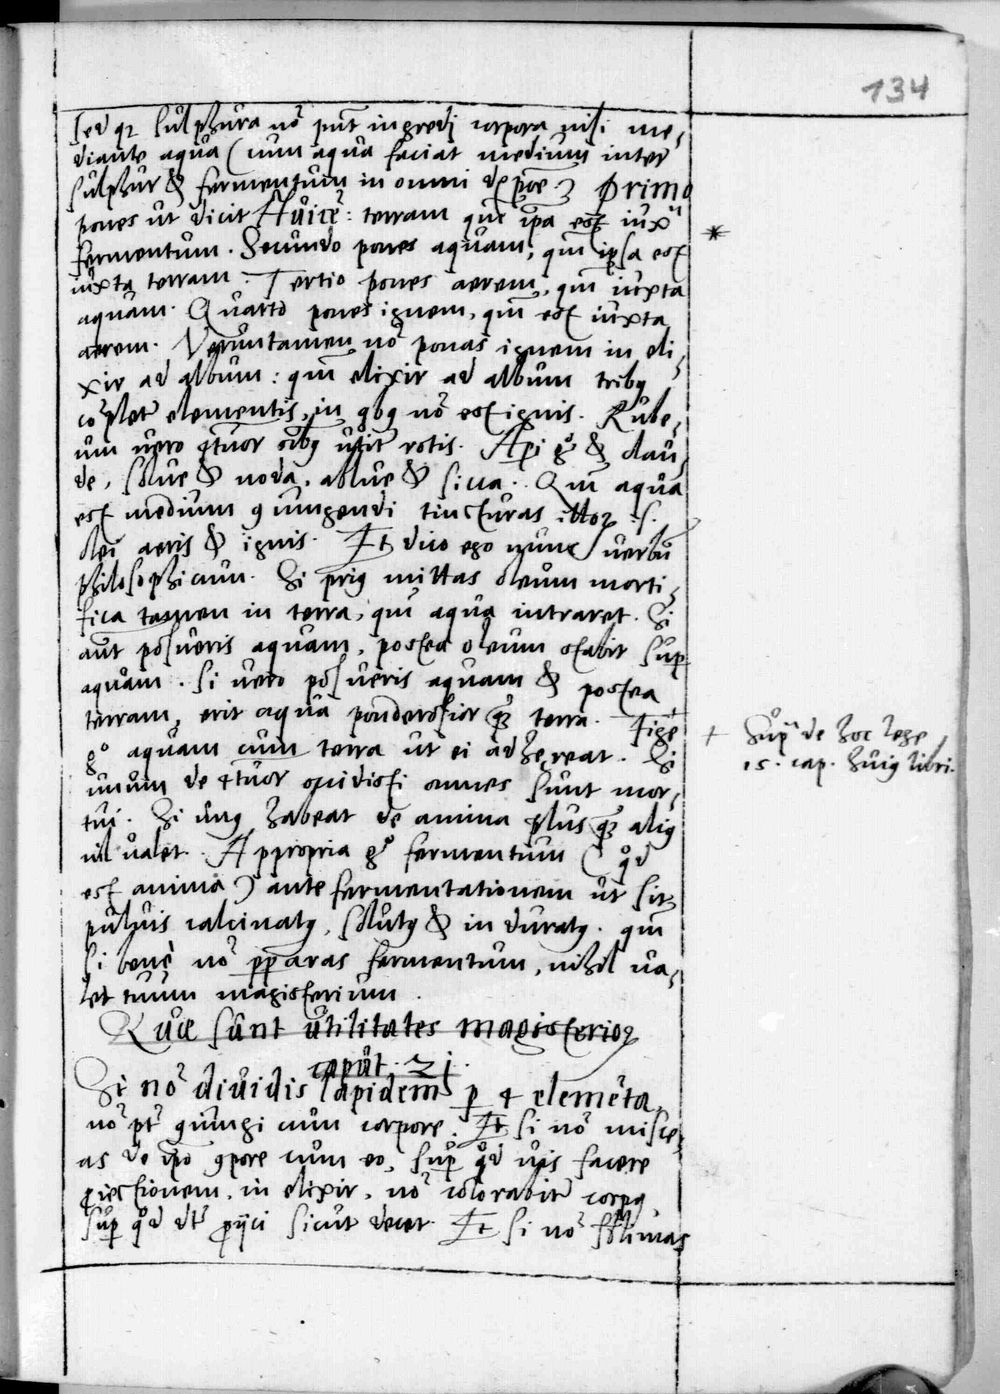 134
sed qꝫ sulphura nõ pñt ingredi corpora nisi me,
diante aqua (cum aqua faciat medium inter
sulphur & fermentum in omni Primo
pones ut dicit Auicẽ: terram que ip̃a est iux
fermentum. Secundo pones aquam, qm̃ ipsa est
iuxta terram. Tertio pones aerem, qm̃ iuxta
aquam. Quarto pones ignem, qm̃ est iuxta
aerem. Veruntamen nõ ponas ignem in eli,
xir ad album: qm̃ elixir ad album tribꝰ
cõpletr elementis, in qbꝰ nõ est ignis. Rube,
um vero 4tuor oĩbꝰ utitr rotis. Api gº & clau,
de, solue & noda, ablue & sicca. Qm̃ aqua
est medium ꝯiungendi tincturas illoꝝ .s.
olei aeris & ignis. Et dico ego nunc verbũ
philosophicum. Si priꝰ mittas oleum morti,
fica tamen in terra, qm̃ aqua intraret. Si
aũt posueris aquam, postea oleum stabit sup̱
aquam. Si vero posueris aquam & postea
terram, erit aqua ponderosior qꝫ terra. Fige
gº aquam cum terra ut ei adhęreat. Si
unum de 4tuor occidisti omnes sunt mor,
tui. Si unꝰ habeat de anima plus qꝫ aliꝰ
nil valet. Appropria gº fermentum (qd
est anima) ante fermentationem ut sit
puluis calcinatꝰ, solutꝰ & induratꝰ. qm̃
si benè nõ p̱p̱aras fermentum, nihil ua,
let tuum magisterium.
Quæ sunt utilitates magisterioꝝ
caput. 21.
Si nõ diuidis lapidem p̱ 4 elemẽta,
nõ pt̃ ꝯiungi cum corpore. Et si nõ misce,
as de ip̃o ꝯpore cum eo, sup̱ qd vis facere
ꝓiectionem, in elixir, nõ colorabitr corpꝰ
sup̱ qd dtr ꝓijci sicut decet. Et si nõ sublimas
*
+ Supius de hoc lege
15. cap. huiꝰ libri.